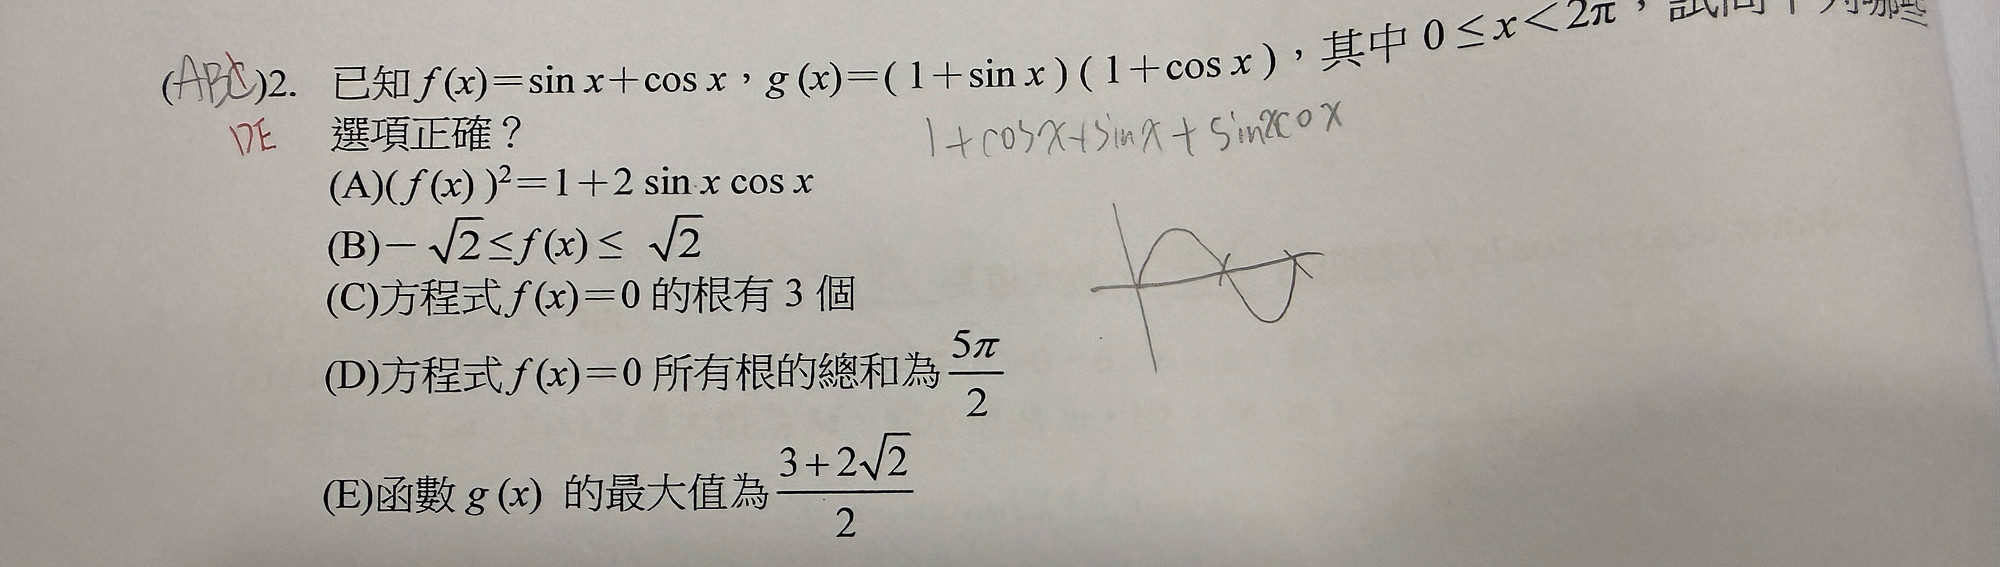 (ABC)2. 已知 f(x)=sin x+cos x，g(x)=(1+sin x)(1+cos x)，其中 0≤x<2π，試問下列哪些
DE 選項正確？
1+cosx+sinx+sinxcox
(A)(f(x))²=1+2 sin x cos x
(B)−√2≤f(x)≤ √2
(C)方程式 f(x)=0 的根有 3 個
(D)方程式 f(x)=0 所有根的總和為 5π/2
(E)函數 g(x) 的最大值為 (3+2√2)/2